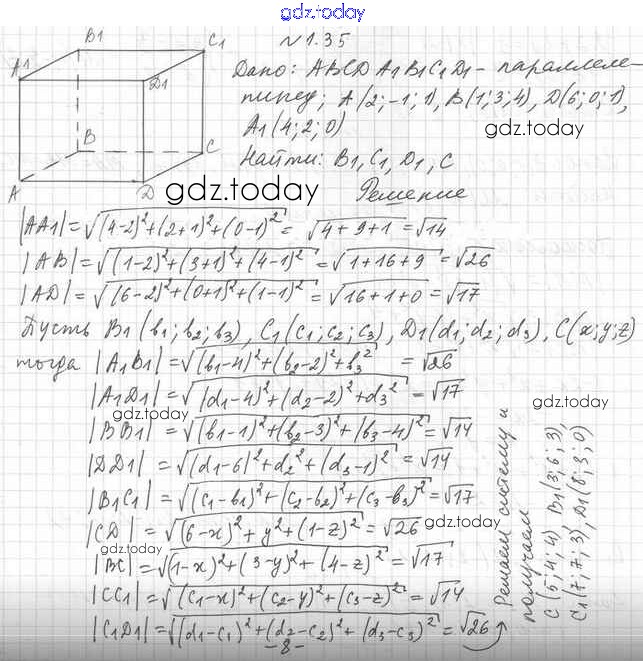 gdz.today
N1.35
B1
C1
A1
D1
B
C
A
D
Дано: ABCD A1B1C1D1 - параллеле-
пипед; A(2;-1;1), B(1;3;4), D(6;0;1),
A1(4;2;0)
gdz.today
Найти: B1, C1, D1, C
gdz.today
Решение
|AA1|=√((4-2)²+(2+1)²+(0-1)²)= √(4+9+1)=√14
|AB|=√((1-2)²+(3+1)²+(4-1)²)=√(1+16+9)=√26
|AD|=√((6-2)²+(0+1)²+(1-1)²)=√(16+1+0)=√17
Пусть B1(b1;b2;b3), C1(c1;c2;c3), D1(d1;d2;d3), C(x;y;z)
тогда |A1B1|=√((b1-4)²+(b2-2)²+b3²) =√26
|A1D1|=√((d1-4)²+(d2-2)²+d3²)=√17
gdz.today
gdz.today
|BB1|=√((b1-1)²+(b2-3)²+(b3-4)²)=√14
|DD1|=√((d1-6)²+d2²+(d3-1)²)=√14
|B1C1|=√((c1-b1)²+(c2-b2)²+(c3-b3)²)=√17
|CD|=√((6-x)²+y²+(1-z)²)=√26
gdz.today
gdz.today
|BC|=√((1-x)²+(3-y)²+(4-z)²)=√17
|CC1|=√((c1-x)²+(c2-y)²+(c3-z)²)=√14
|C1D1|=√((d1-c1)²+(d2-c2)²+(d3-c3)²)=√26
Решаем систему и
получаем
C(5;4;4) B1(3;6;3),
C1(7;7;3), D1(8;3;0)
-8-